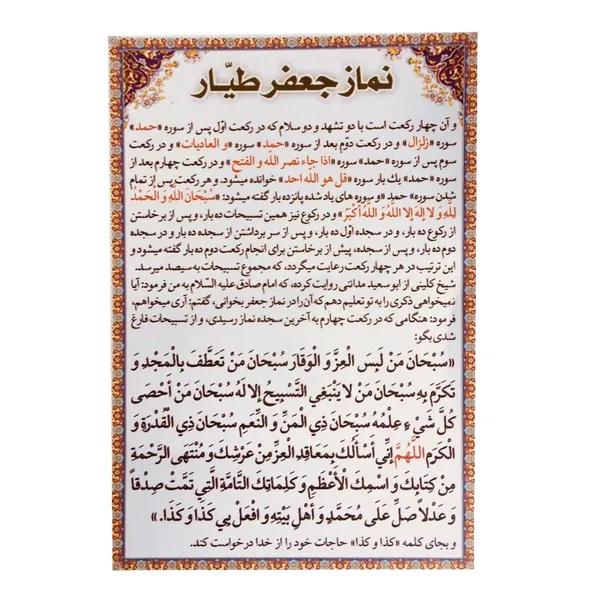 نماز جعفر طیّار
و آن چهار رکعت است با دو تشهد و دو سلام که در رکعت اوّل پس از سوره «حمد»
سوره «زلزال» و در رکعت دوّم بعد از سوره «حمد» سوره «و العادیات» و در رکعت
سوم پس از سوره «حمد» سوره «اذا جاء نصر الله و الفتح» و در رکعت چهارم بعد از
سوره «حمد» یک بار سوره «قل هو الله احد» خوانده میشود. و هر رکعت پس از تمام
شدن سوره» حمد «و سوره های یاد شده پانزده بار گفته میشود: «سُبْحَانَ اللهِ وَ الْحَمْدُ
لِلَّهِ وَ لا إِلهَ إِلا اللهُ وَ اللهُ أَكْبَرُ» و در رکوع نیز همین تسبیحات ده بار، و پس از برخاستن
از رکوع ده بار، و در سجده اوّل ده بار، و پس از سر برداشتن از سجده ده بار و در سجده
دوم ده بار، و پس از سجده، پیش از برخاستن برای انجام رکعت دوم ده بار گفته میشود و
این ترتیب در هر چهار رکعت رعایت میگردد، که مجموع تسبیحات به سیصد میرسد.
شیخ کلینی از ابو سعید مدائنی روایت کرده، که امام صادق علیه السّلام به من فرمود: آیا
نمیخواهی ذکری را به تو تعلیم دهم که آن را در نماز جعفر بخوانی، گفتم: آری میخواهم،
فرمود: هنگامی که در رکعت چهارم به آخرین سجده نماز رسیدی، و از تسبیحات فارغ
شدی بگو:
«سُبْحَانَ مَنْ لَبِسَ الْعِزَّ وَ الْوَقَارَ سُبْحَانَ مَنْ تَعَطَّفَ بِالْمَجْدِ وَ
تَكَرَّمَ بِهِ سُبْحَانَ مَنْ لا يَنْبَغِي التَّسْبِيحُ إِلا لَهُ سُبْحَانَ مَنْ أَحْصَى
كُلَّ شَيْءٍ عِلْمُهُ سُبْحَانَ ذِي الْمَنِّ وَ النِّعَمِ سُبْحَانَ ذِي الْقُدْرَةِ وَ
الْكَرَمِ اللَّهُمَّ إِنِّي أَسْأَلُكَ بِمَعَاقِدِ الْعِزِّ مِنْ عَرْشِكَ وَ مُنْتَهَى الرَّحْمَةِ
مِنْ كِتَابِكَ وَ اسْمِكَ الْأَعْظَمِ وَ كَلِمَاتِكَ التَّامَّةِ الَّتِي تَمَّتْ صِدْقاً
وَ عَدْلاً صَلِّ عَلَى مُحَمَّدٍ وَ أَهْلِ بَيْتِهِ وَ افْعَلْ بِي كَذَا وَ كَذَا.»
و بجای کلمه «کذا و کذا» حاجات خود را از خدا درخواست کند.